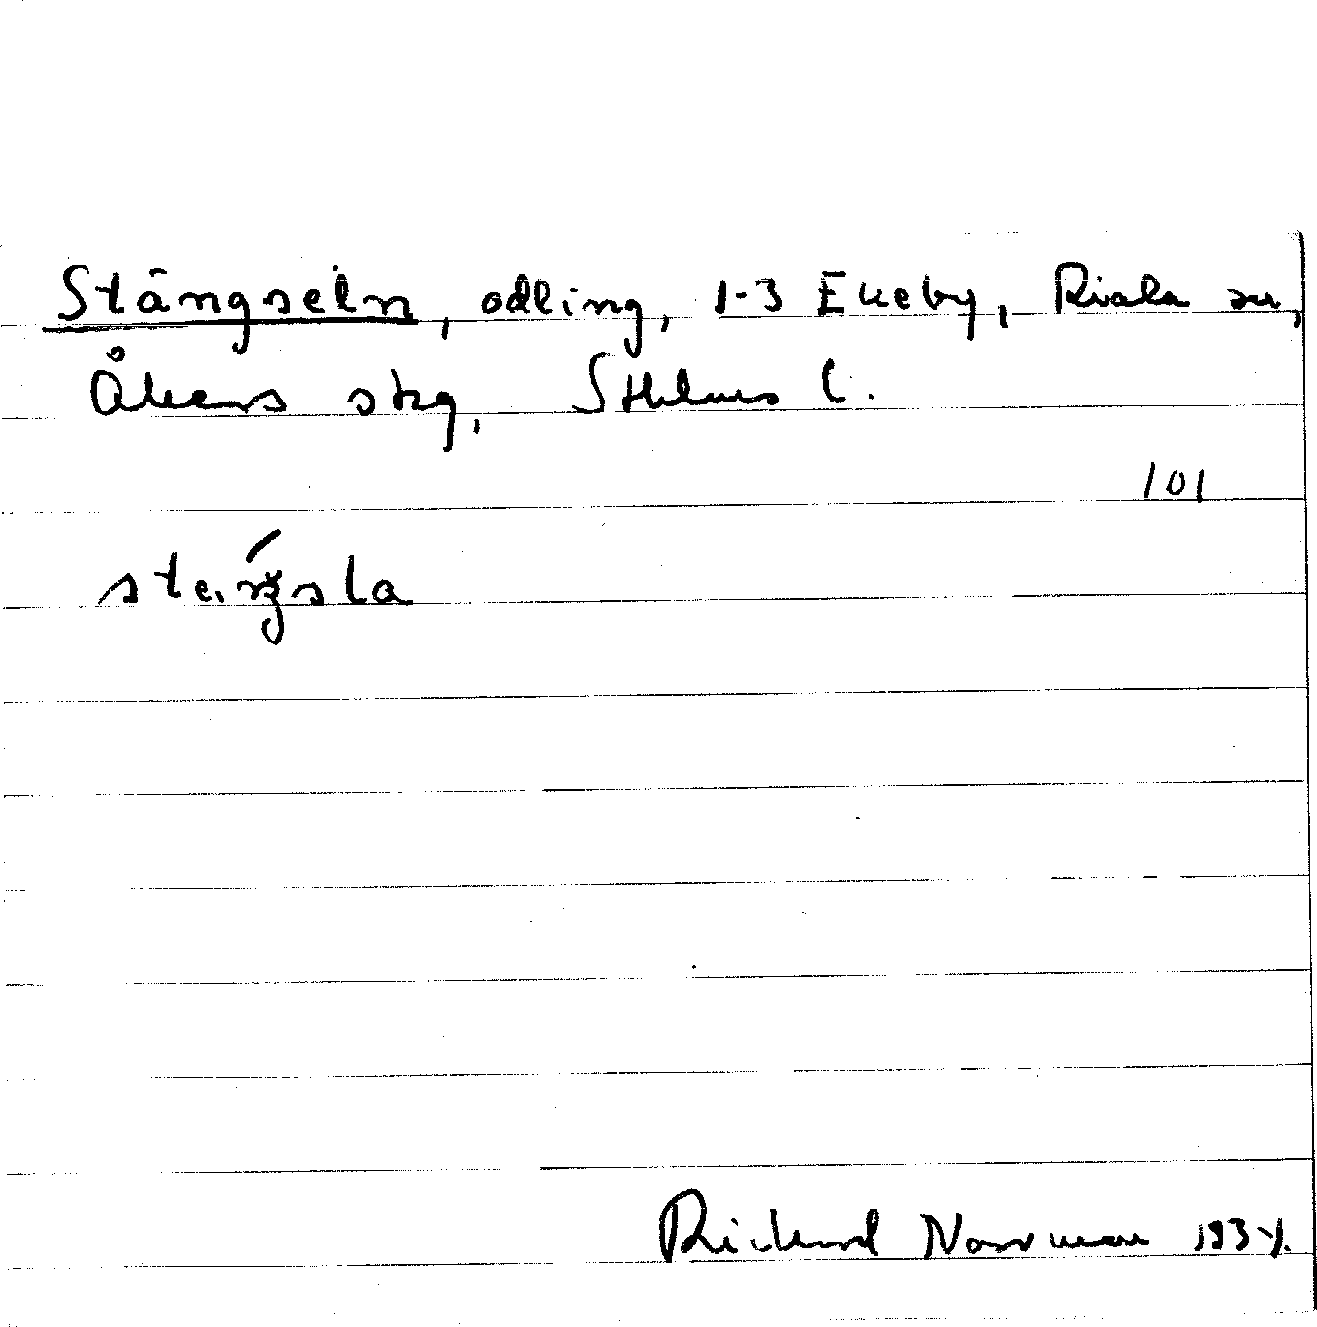 Stängseln, odling, 1-3 Ekeby, Riala sn,
Åkers skg, Sthlms l.
101
Rickard Norrman 1937.